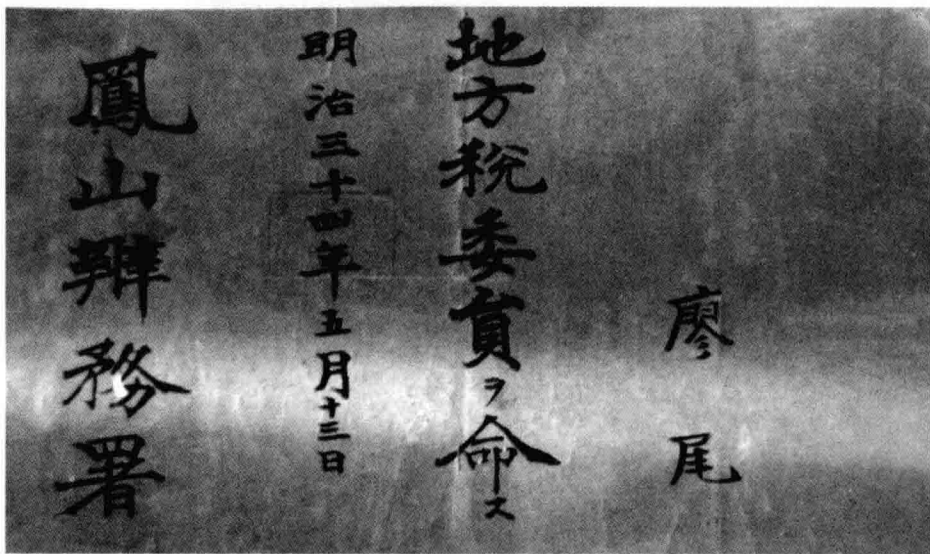 廖尾
地方稅委員ヲ命ス
明治三十四年五月十三日
鳳山辨務署